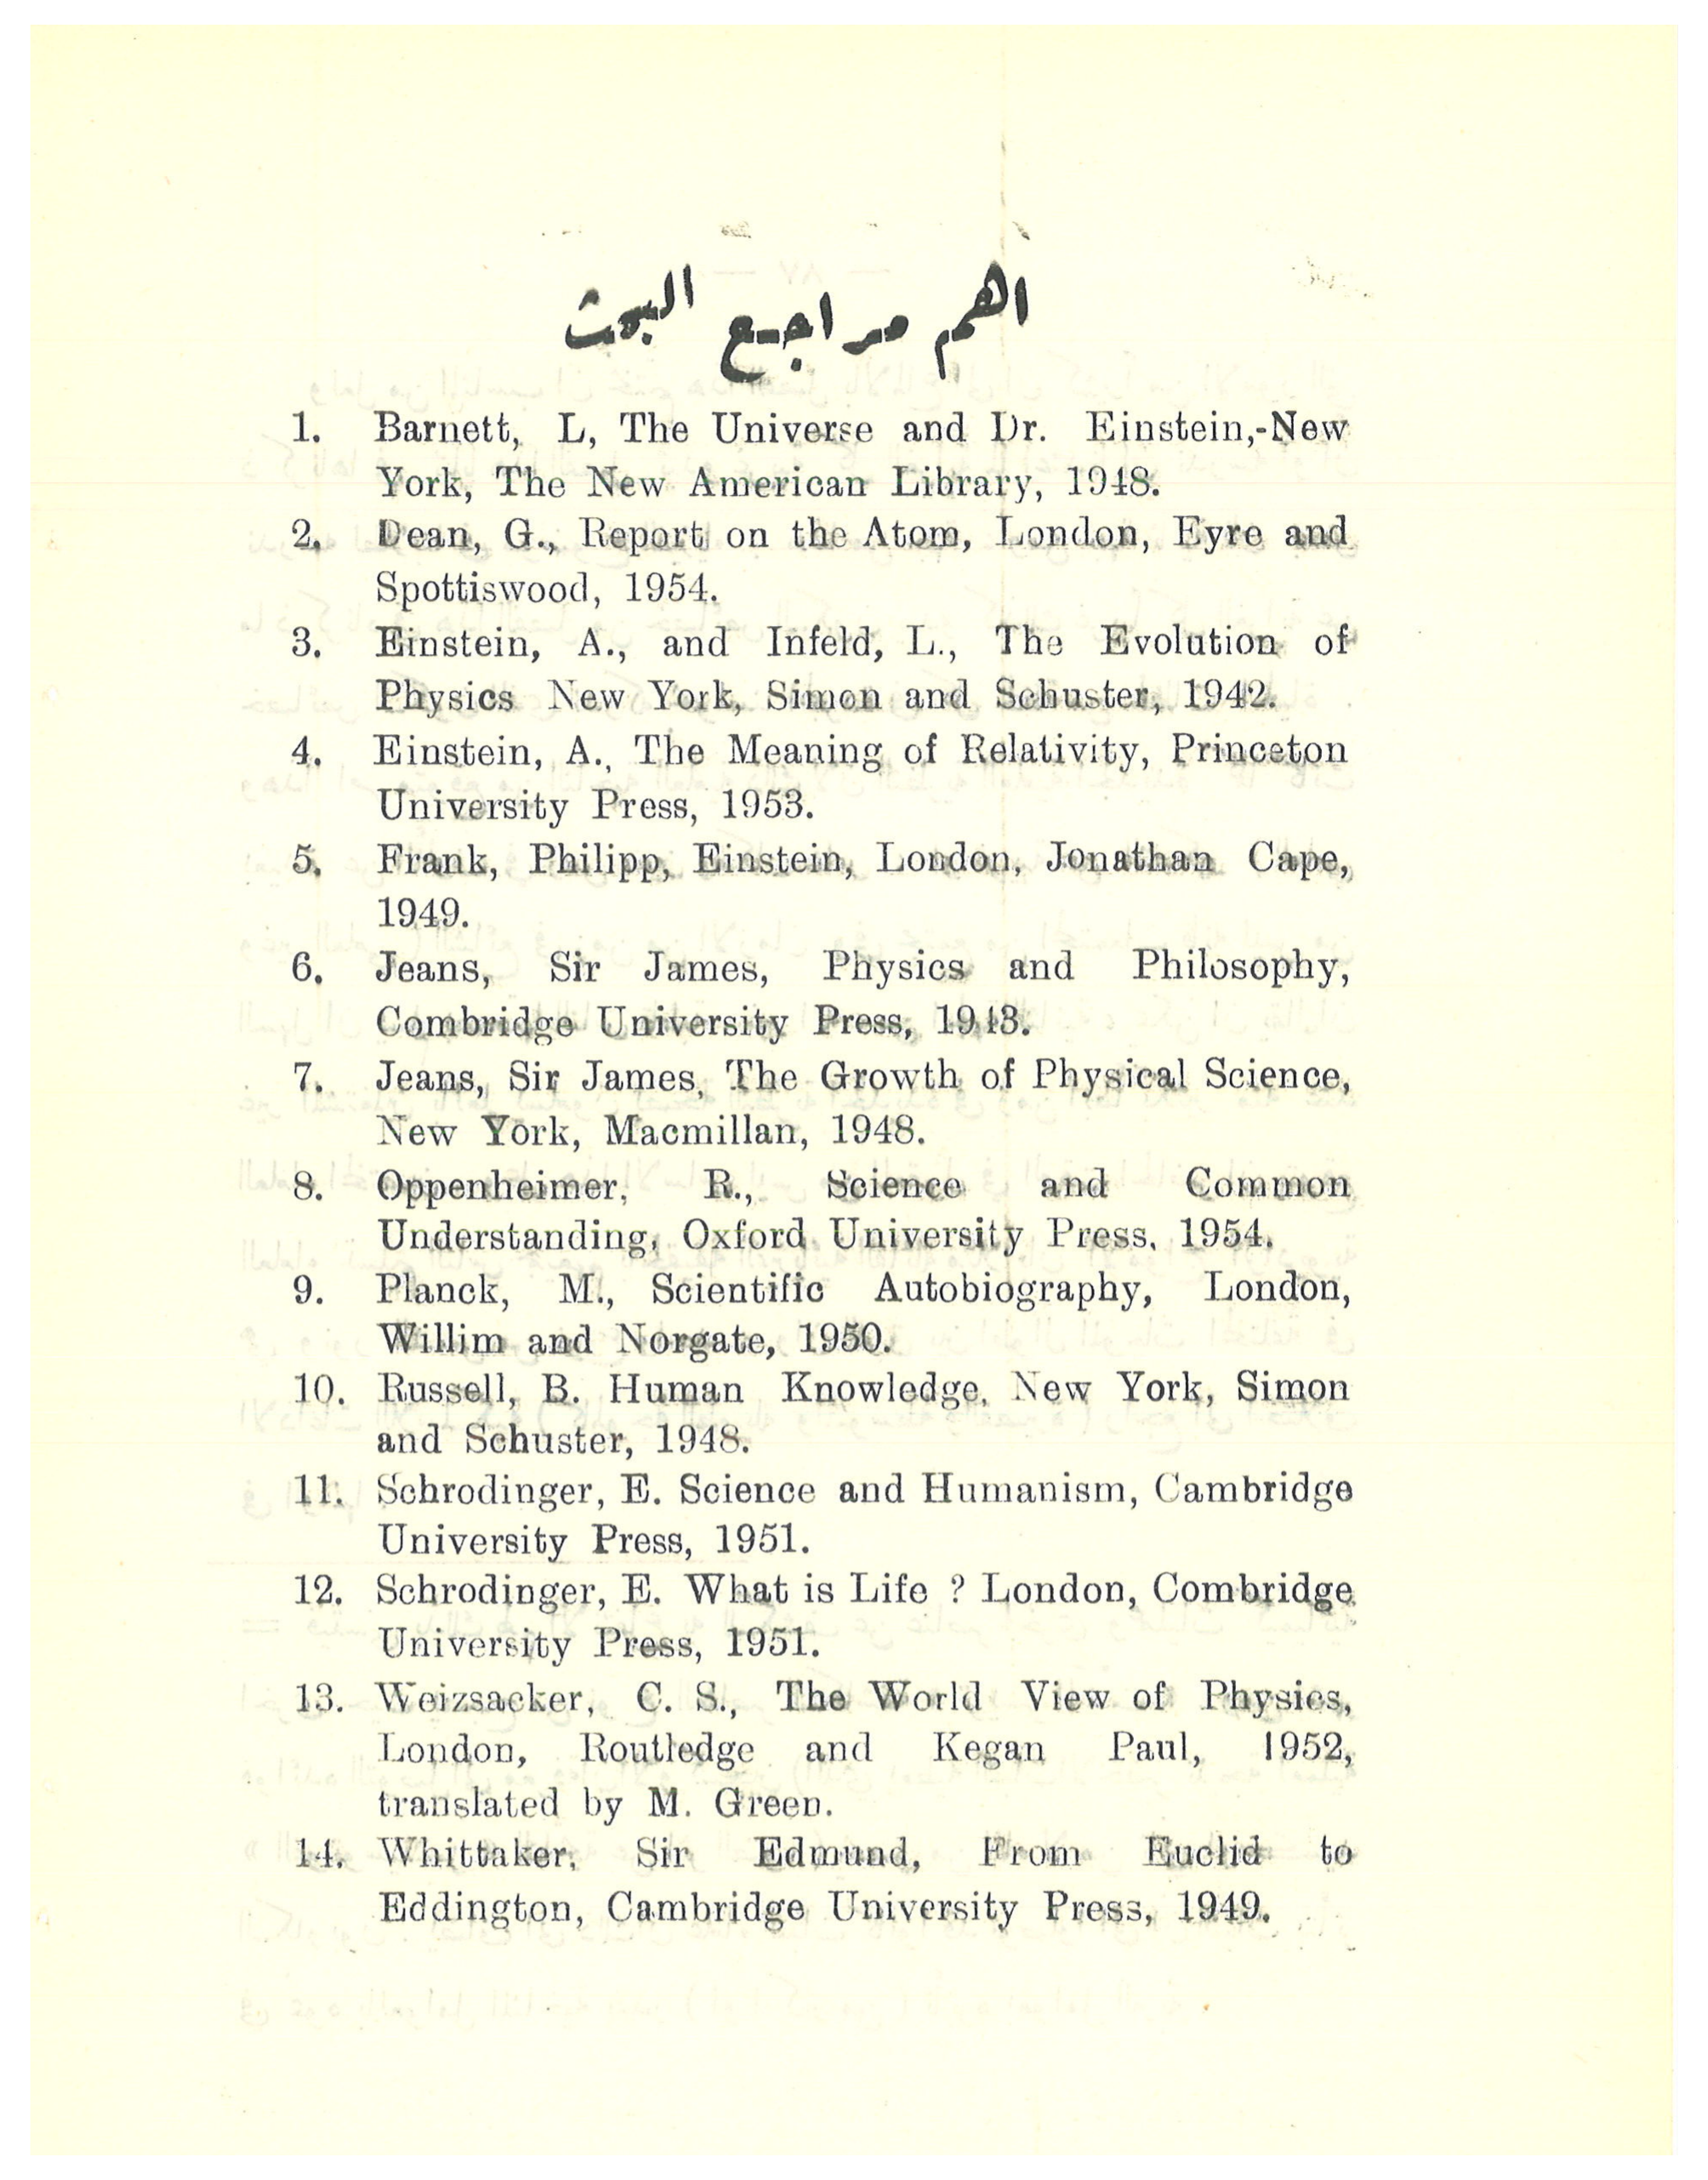 اهم مراجع البحث
1. Barnett, L, The Universe and Dr. Einstein,-New
York, The New American Library, 1948.
2. Dean, G., Report on the Atom, London, Eyre and
Spottiswood, 1954.
3. Einstein, A., and Infeld, L., The Evolution of
Physics New York, Simon and Schuster, 1942.
4. Einstein, A., The Meaning of Relativity, Princeton
University Press, 1953.
5. Frank, Philipp, Einstein, London, Jonathan Cape,
1949.
6. Jeans, Sir James, Physics and Philosophy,
Combridge University Press, 1943.
7. Jeans, Sir James, The Growth of Physical Science,
New York, Macmillan, 1948.
8. Oppenheimer, R., Science and Common
Understanding, Oxford University Press, 1954.
9. Planck, M., Scientific Autobiography, London,
Willim and Norgate, 1950.
10. Russell, B. Human Knowledge, New York, Simon
and Schuster, 1948.
11. Schrodinger, E. Science and Humanism, Cambridge
University Press, 1951.
12. Schrodinger, E. What is Life ? London, Combridge
University Press, 1951.
13. Weizsacker, C. S., The World View of Physics,
London, Routledge and Kegan Paul, 1952,
translated by M. Green.
14. Whittaker, Sir Edmund, From Euclid to
Eddington, Cambridge University Press, 1949.